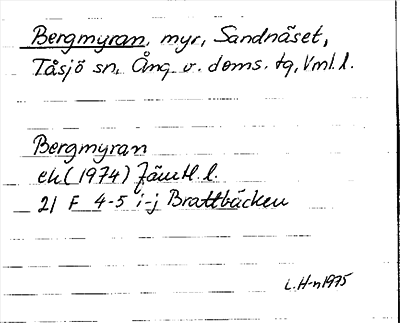 Bergmyran, myr, Sandnäset,
Tåsjö sn, Ång. v. doms. tg, Vml. l.
Bergmyran
ek (1974) Jämtl. l.
21 F 4-5 i-j Brattbäcken
L. H-n 1975